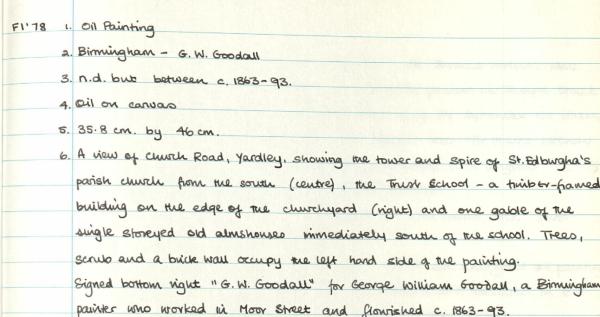 F1'78 1. Oil Painting
2. Birmingham - G.W. Goodall
3. n.d. but between c. 1863-93.
4. Oil on canvas
5. 35.8 cm. by 46 cm.
6. A view of Church Road, Yardley, showing the tower and spire of St. Edburgha's
parish church from the south (centre), the Trust School - a timber-framed
building on the edge of the churchyard (right) and one gable of the
single storeyed old almshouses immediately south of the school. Trees,
scrub and a brick wall occupy the left hand side of the painting.
Signed bottom right "G.W. Goodall" for George William Goodall, a Birmingham
painter who worked in Moor Street and flourished c. 1863-93.